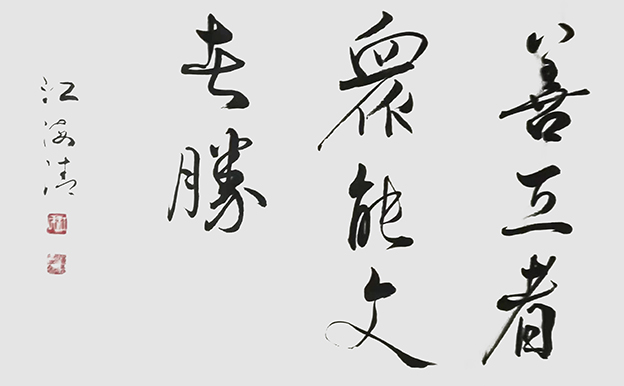 善互者
眾能文
者勝
江海清